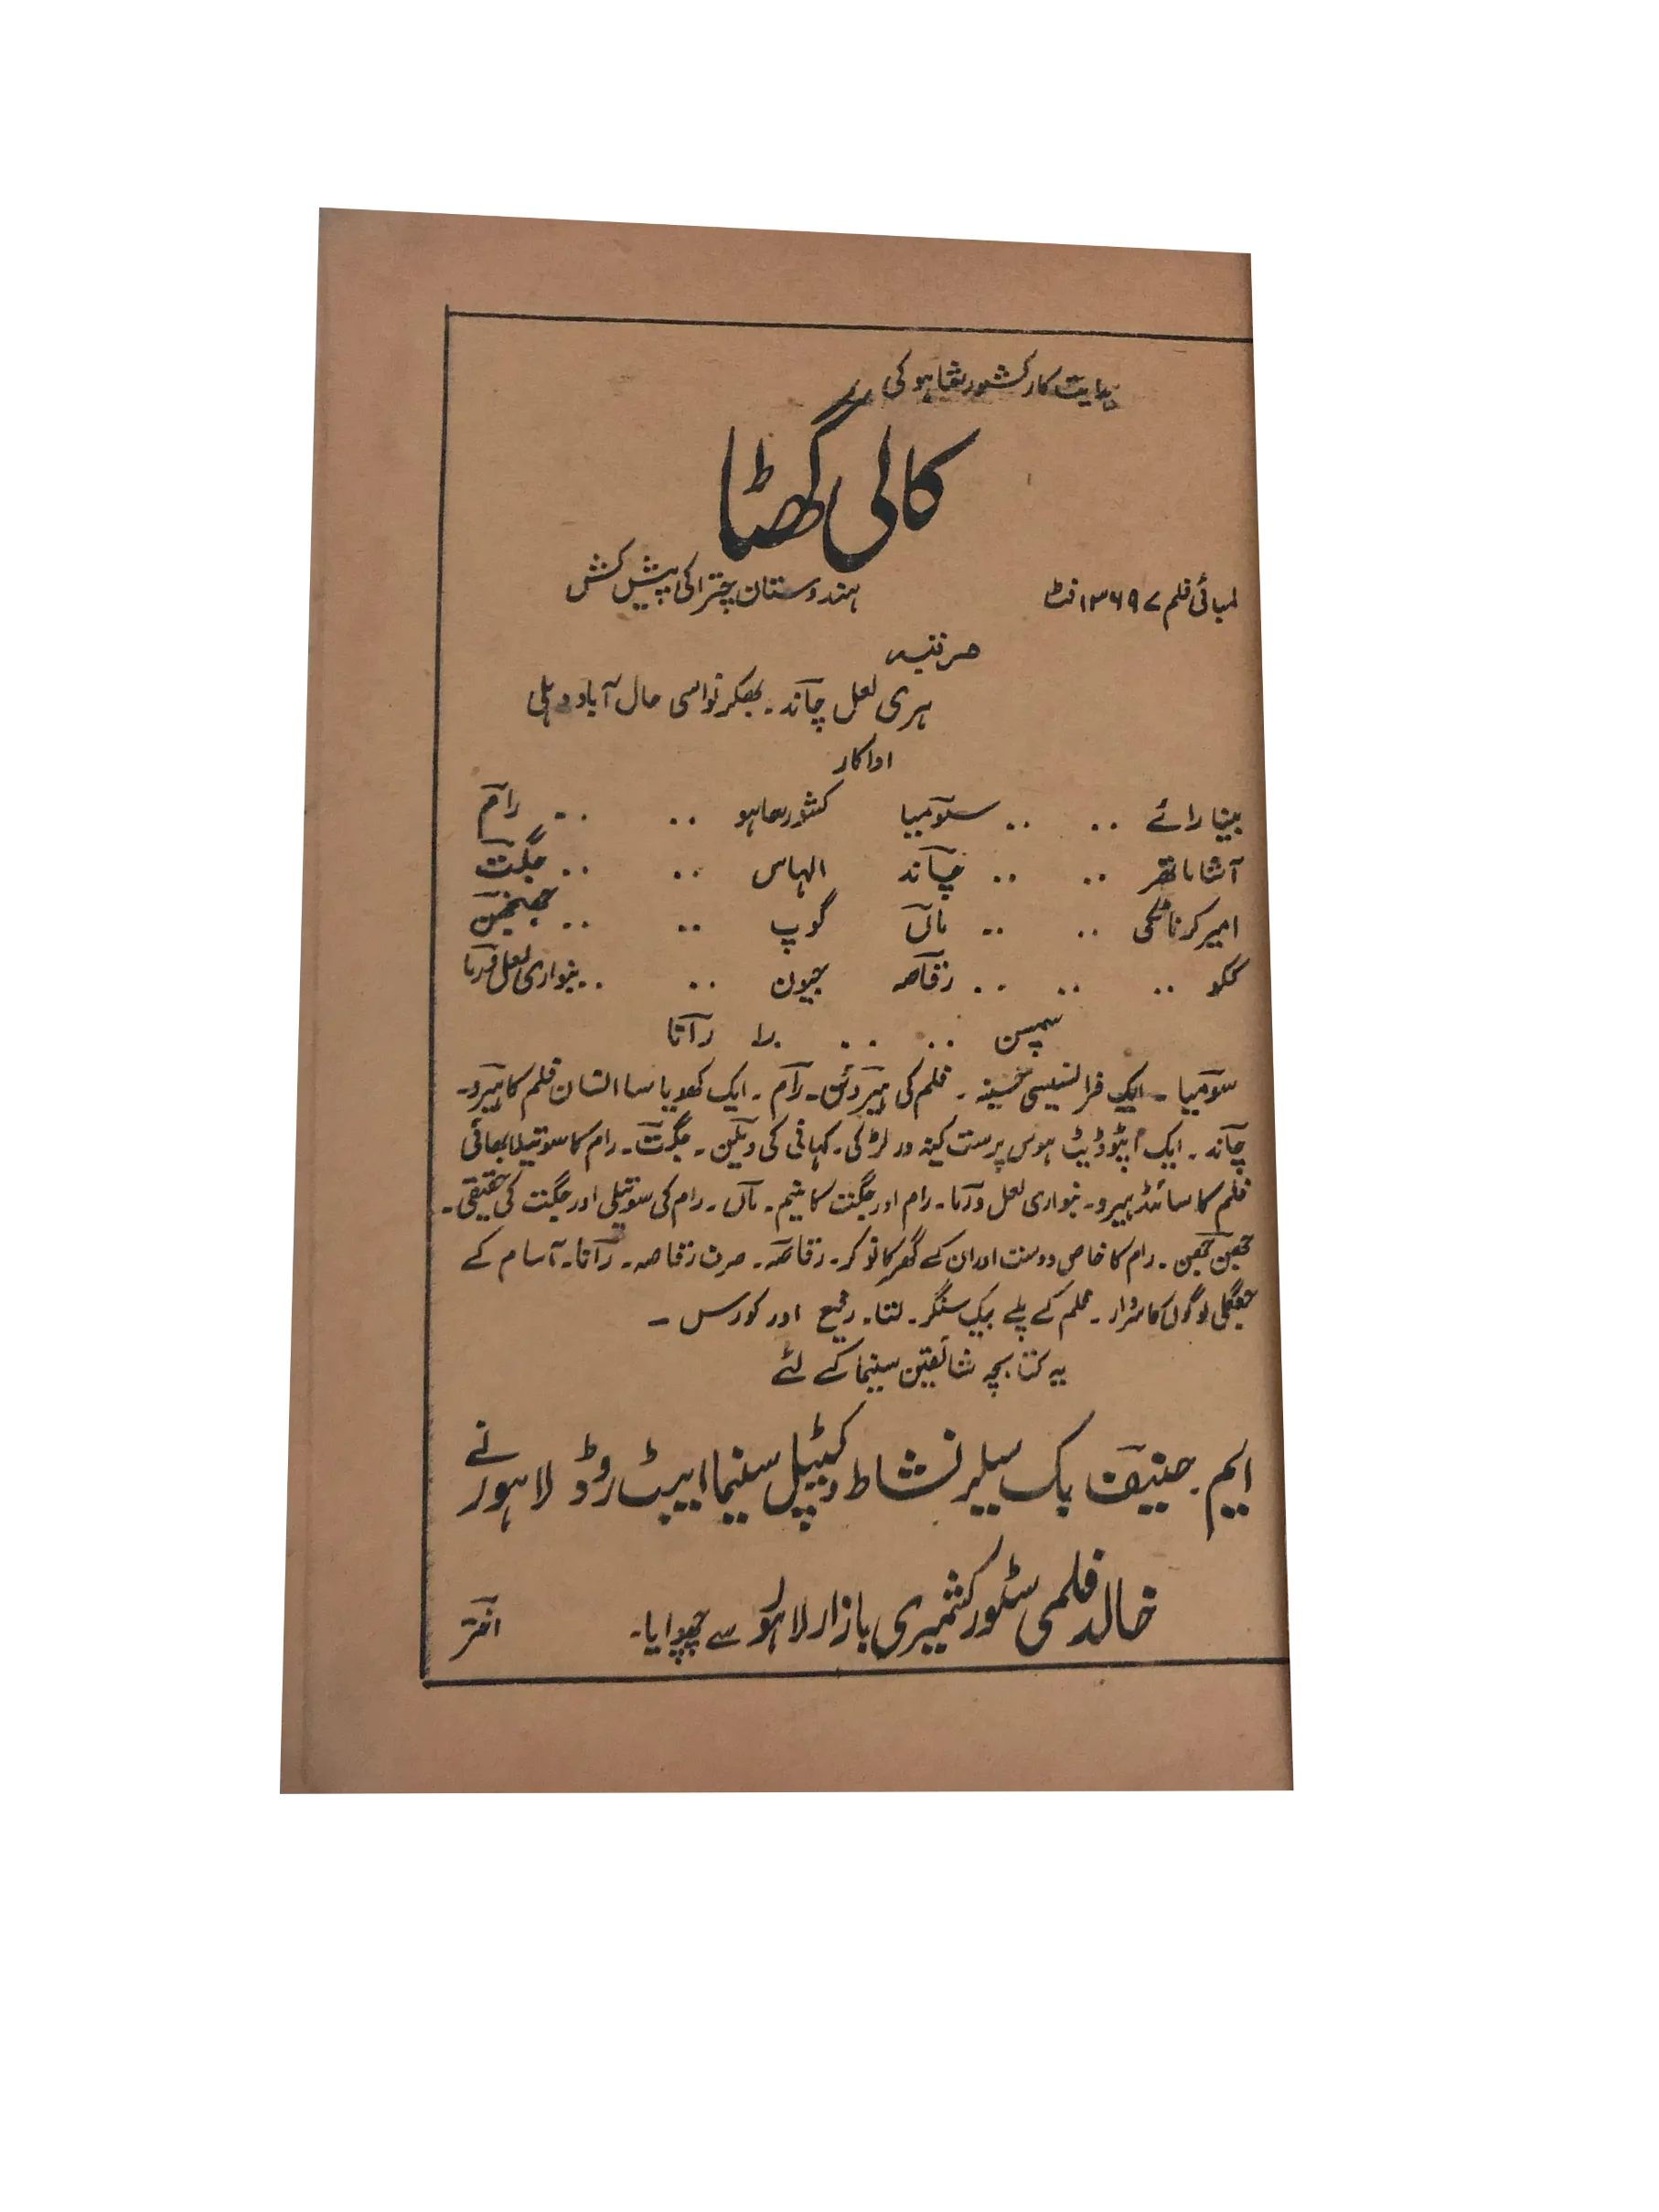 ہدایت کار کشور ساہو کی
کالی گھٹا
لمبائی فلم ۱۳۶۹۷ فٹ ہندوستان چترا کی پیش کش
مرتبہ
ہری لعل چاند۔ بھکر نواسی حال آباد دہلی
اداکار
بینا رائے .. .. سومبیا کشور ساہو .. .. رام
آشا ماتھر .. .. چاند الہاس .. .. جگت
امیر کرناٹکی .. .. ماں گوپ .. .. جھنجھن
ککو .. .. .. رقاصہ جیون .. .. بنواری لعل ورما
سمپسن .. .. .. را راتا
سومبیا ۔ ایک فرانسیسی حسینہ ۔ فلم کی ہیروئن۔ رام ۔ ایک کھویا سا انسان فلم کا ہیرو۔
چاند ۔ ایک اپٹوڈیٹ ہوس پرست کینہ ور لڑکی۔ کہانی کی ویکن ۔ جگت۔ رام کا سوتیلا بھائی
فلم کا سائڈ ہیرو۔ بنواری لعل ورما۔ رام اور جگت کا منیم۔ ماں۔ رام کی سوتیلی اور جگت کی حقیقی۔
جھن جھن ۔ رام کا خاص دوست اور ان کے گھر کا نوکر۔ رقاصہ۔ صرف رقاصہ۔ راتا۔ آسام کے
جنگلی لوگوں کا سردار ۔ فلم کے پلے بیک سنگر۔ لتا۔ رفیع اور کورس ۔
یہ کتابچہ شائقین سینما کے لئے
ایم۔ حنیف بک سیلر نشاط و کیپٹل سنیما ایبٹ روڈ لاہور نے
خالد فلمی سٹور کشمیری بازار لاہور سے چھپوایا۔ اختر